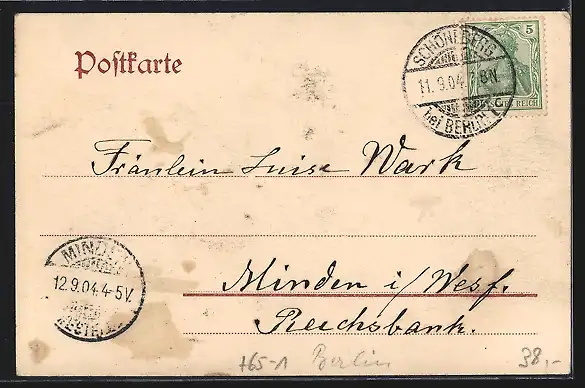 Postkarte
SCHÖNEBERG
11.9.04. 8-N.
bei BERLIN
5
DEUTSCHES REICH
Fräulein Luise Wark
MINDEN
12.9.04.4-5V.
(WESTFALEN)
Minden i/Wesf.
Reichsbank.
+65-1 Berlin
38,-